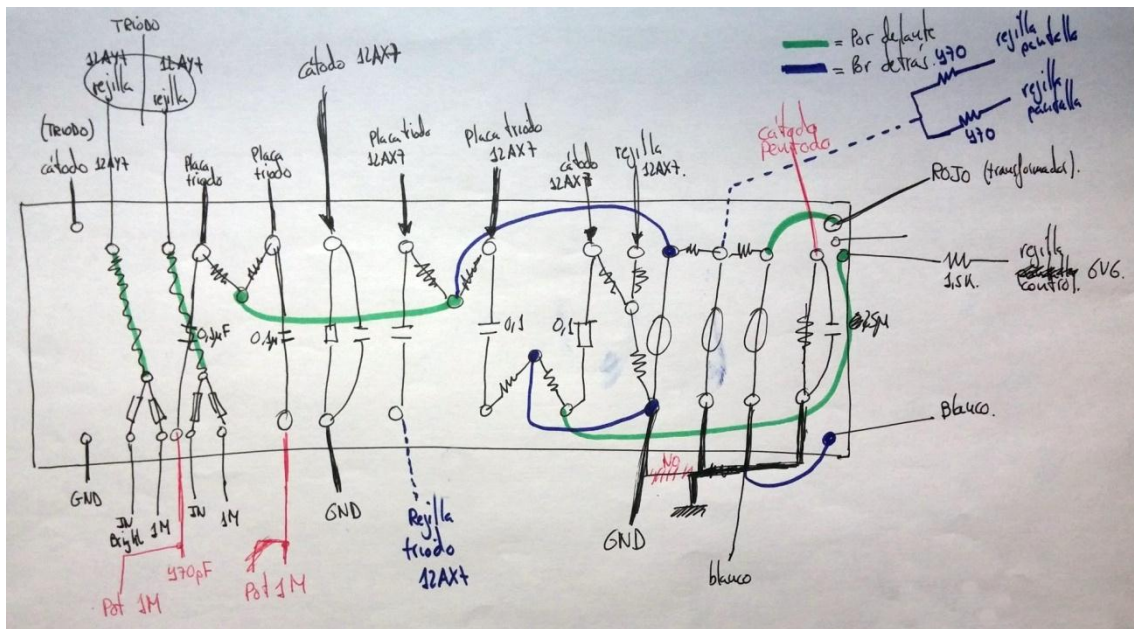 TRIODO
12AY7
rejilla
12AY7
rejilla
(TRIODO)
cátodo 12AY7
Placa
triodo
Placa
triodo
cátodo 12AX7
Placa triodo
12AX7
Placa triodo
12AX7
cátodo
12AX7
rejilla
12AX7.
= Por delante
= Por detrás.
470
rejilla
pantalla
rejilla
pantalla
470
cátodo
pentodo
ROJO (transformador).
1,5K.
rejilla
control.
6V6.
0,1µF
0,1µ
0,1
0,1
25µ
Blanco.
GND
IN
Bright
1M
IN
1M
470pF
Pot 1M
Pot 1M
GND
Rejilla
triodo
12AX7
NO
GND
blanco